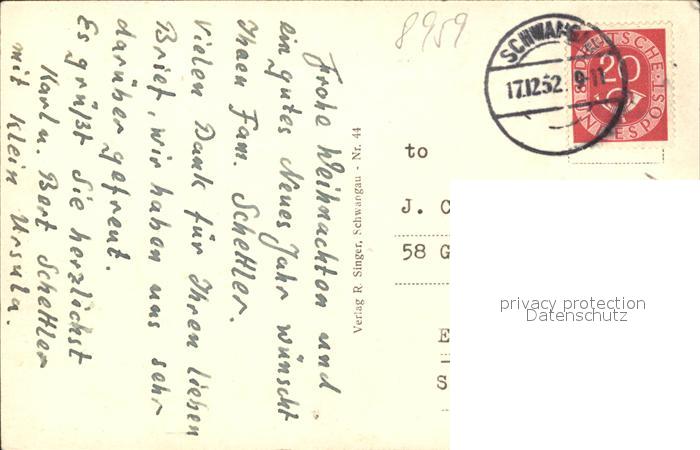 Frohe Weihnachten und
ein gutes Neues Jahr wünscht
Ihnen Fam. Schettler.
Vielen Dank für Ihren lieben
Brief, wir haben uns sehr
darüber gefreut.
Es grüßt Sie herzlichst
Karl u. Bert Schettler
mit klein Ursula.
8959
Verlag R. Singer, Schwangau - Nr. 44
SCHWANGAU
17.12.52. 9-11
DEUTSCHE BUNDESPOST
20
to
J. C
58 G
E
S
privacy protection
Datenschutz